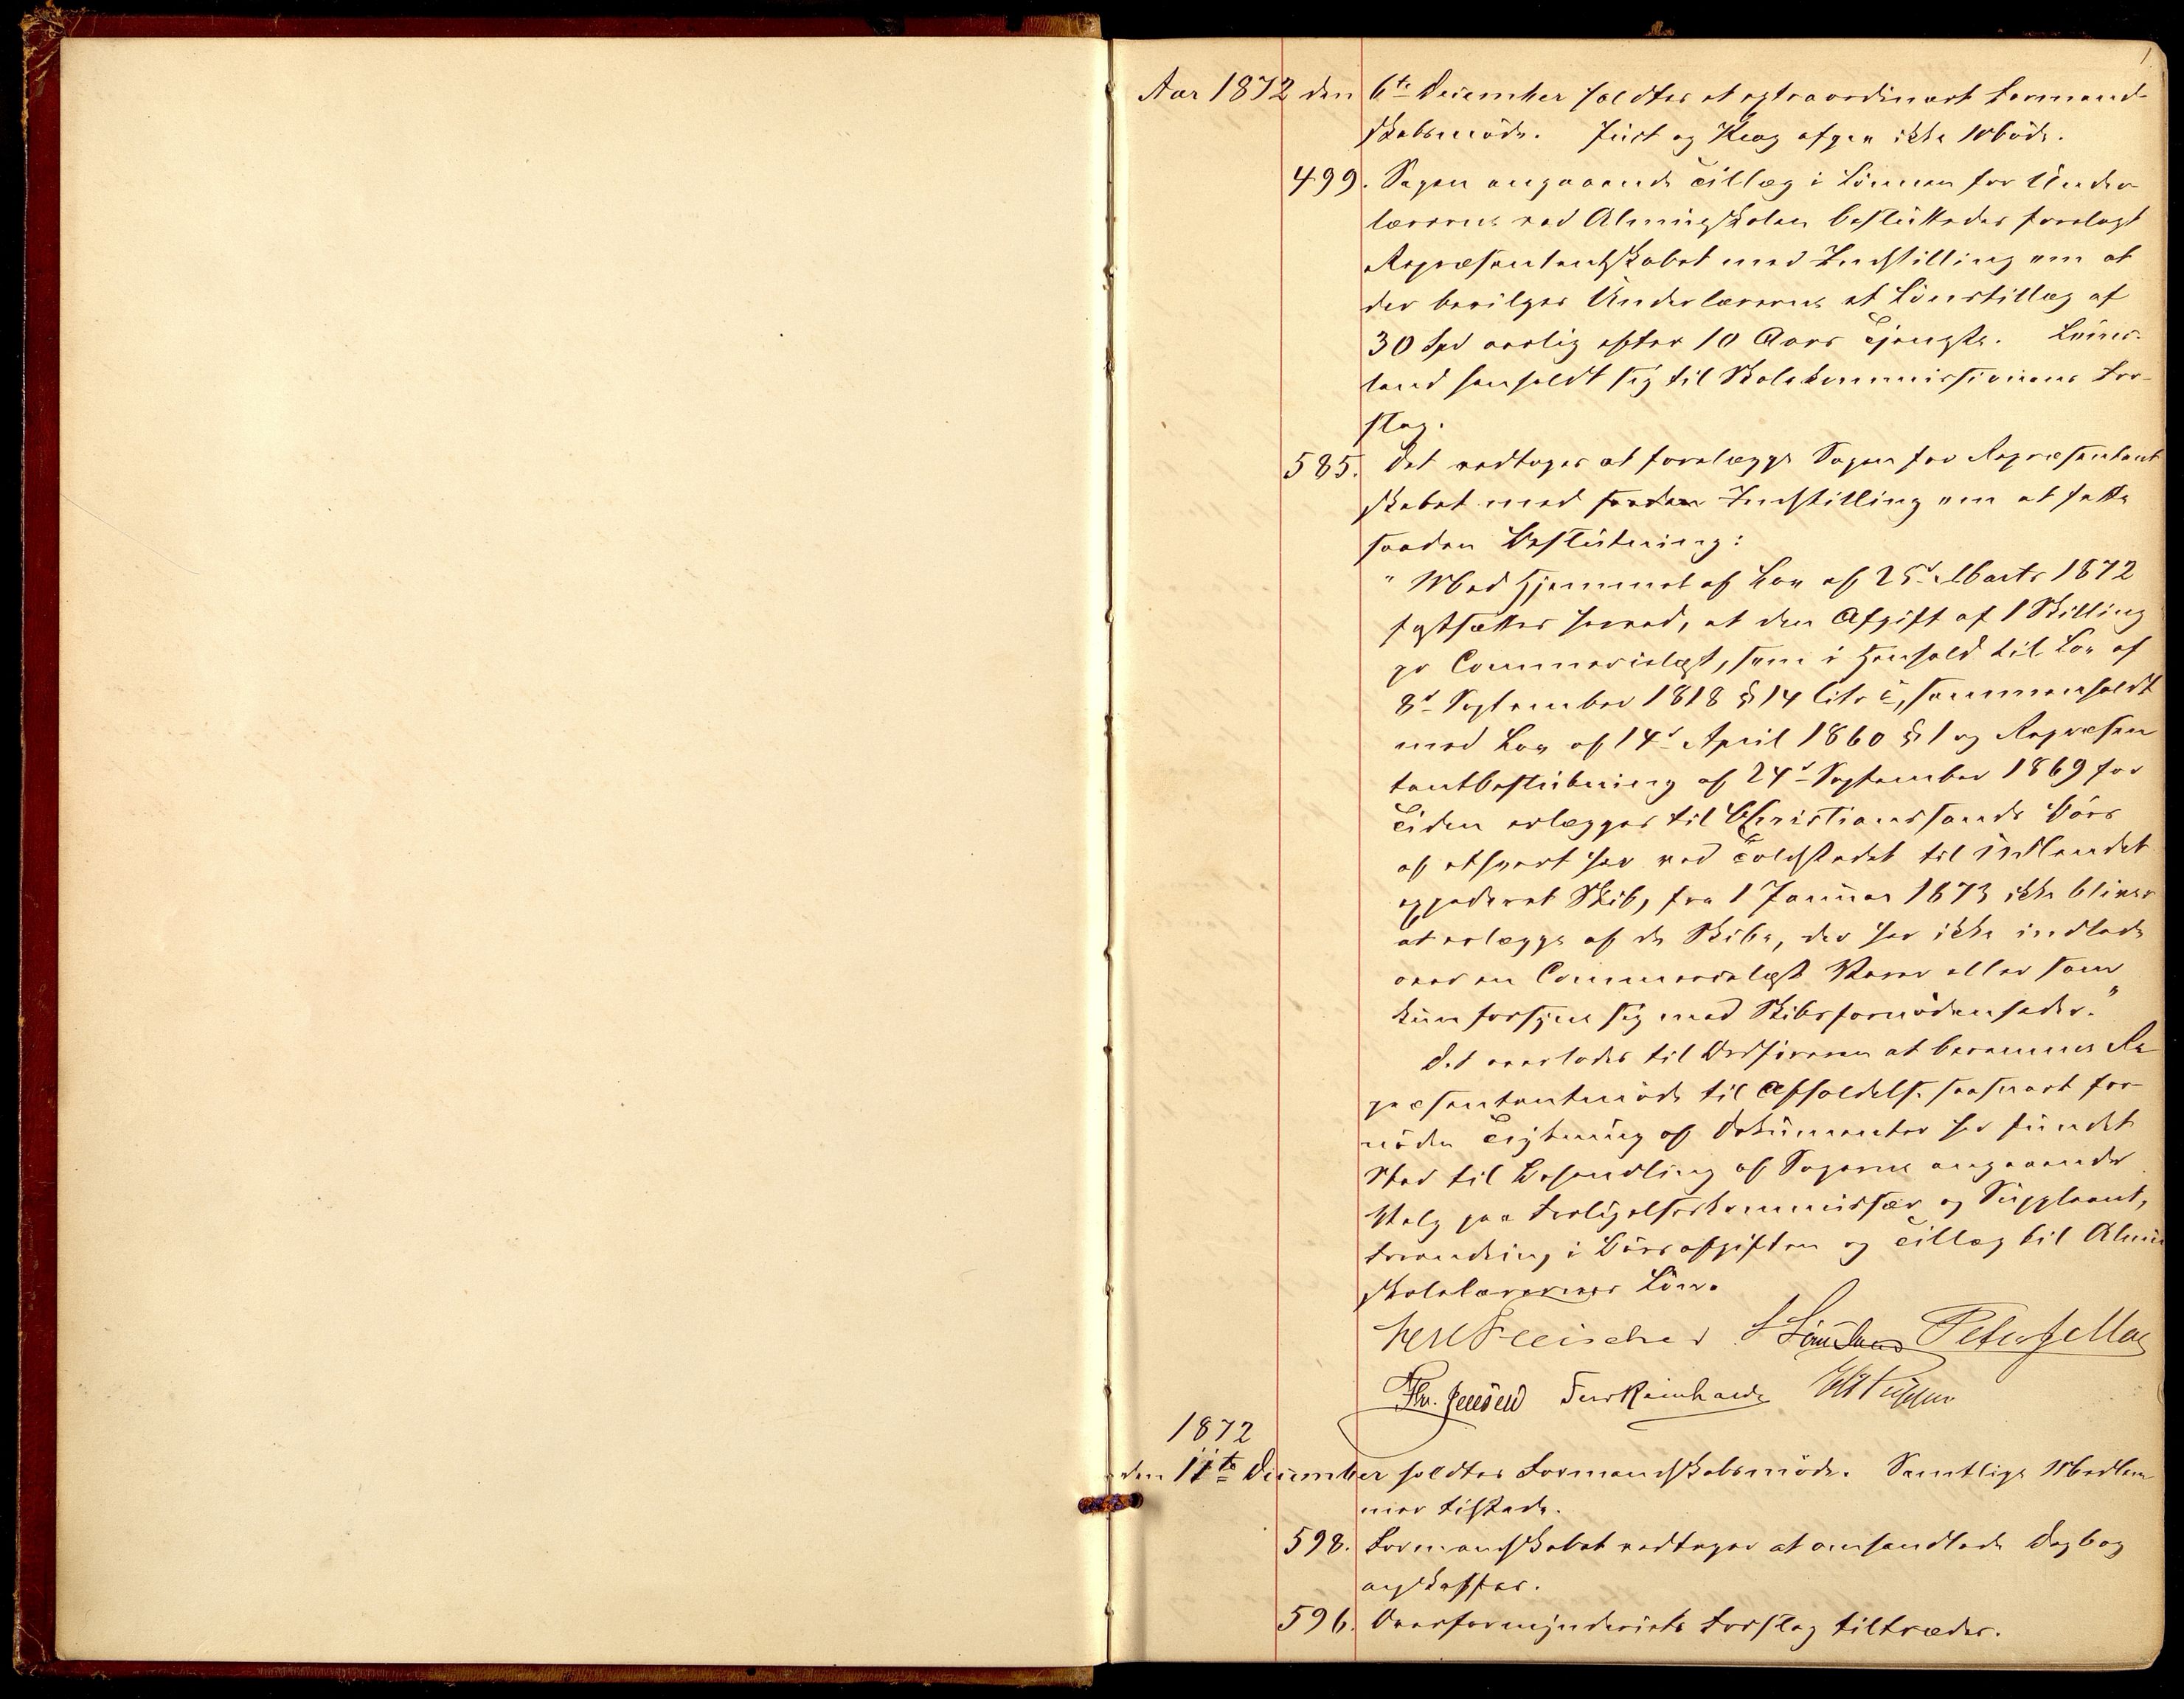 1
Aar 1872 den 6te December holdtes et extraordinært Formand-
skabsmöde. Just og Krag afgav ikke Möde.
499. Sagen angaaende Tillæg i Lönnen for Under-
lærerne ved Almueskolen besluttedes forelagt
Repræsentantskabet med Indstilling om at
der bevilges Underlærerne et Lönstillæg af
30 Spd aarlig efter 10 Aars Tjeneste. Lims-
land henholdt sig til Skolekommissionens For-
slag.
585. Det vedtoges at forelægge Sagen for Repræsentant
skabet med saadan Indstilling om at fatte
saadan Beslutning:
"Med Hjemmel af Lov af 25d Marts 1872
fastsættes herved, at den Afgift af 1 Skilling
pr Commercelæst, som i Henhold til Lov af
8d September 1818 § 14 litr c, sammenholdt
med Lov af 14d April 1860 § 1 og Repræsen
tantbeslutning af 24d September 1869 for
Tiden erlægges til Christianssands Börs
af ethvert her ved Toldstedet til Indlandet
expederet Skib, fra 1 Januar 1873 ikke bliver
at erlægge af de Skibe, der her ikke indlade
over en Commercelæst Varer eller som
kun forsyne sig med Skibsfornödenheder."
Det overlodes til Ordföreren at beramme Re
præsentantmöde til Afholdelse saasnart for-
nöden Trykning af Dokumenter har fundet
Sted til Behandling af Sagerne angaaende
Valg paa Forligelseskommissær og Suppleant,
Forandring i Börsafgiften og Tillæg til Almue
skolelærernes Lön.
Fleischer S Limsland Peter
Fr. Jensen Reinhardt
1872
den 11te December holdtes Formandskabsmöde. Samtlige Medlem
mer tilstede.
598. Formandskabet vedtager at omhandlede Dagbog
anskaffes.
596. Overformynderiets Forslag tiltrædes.